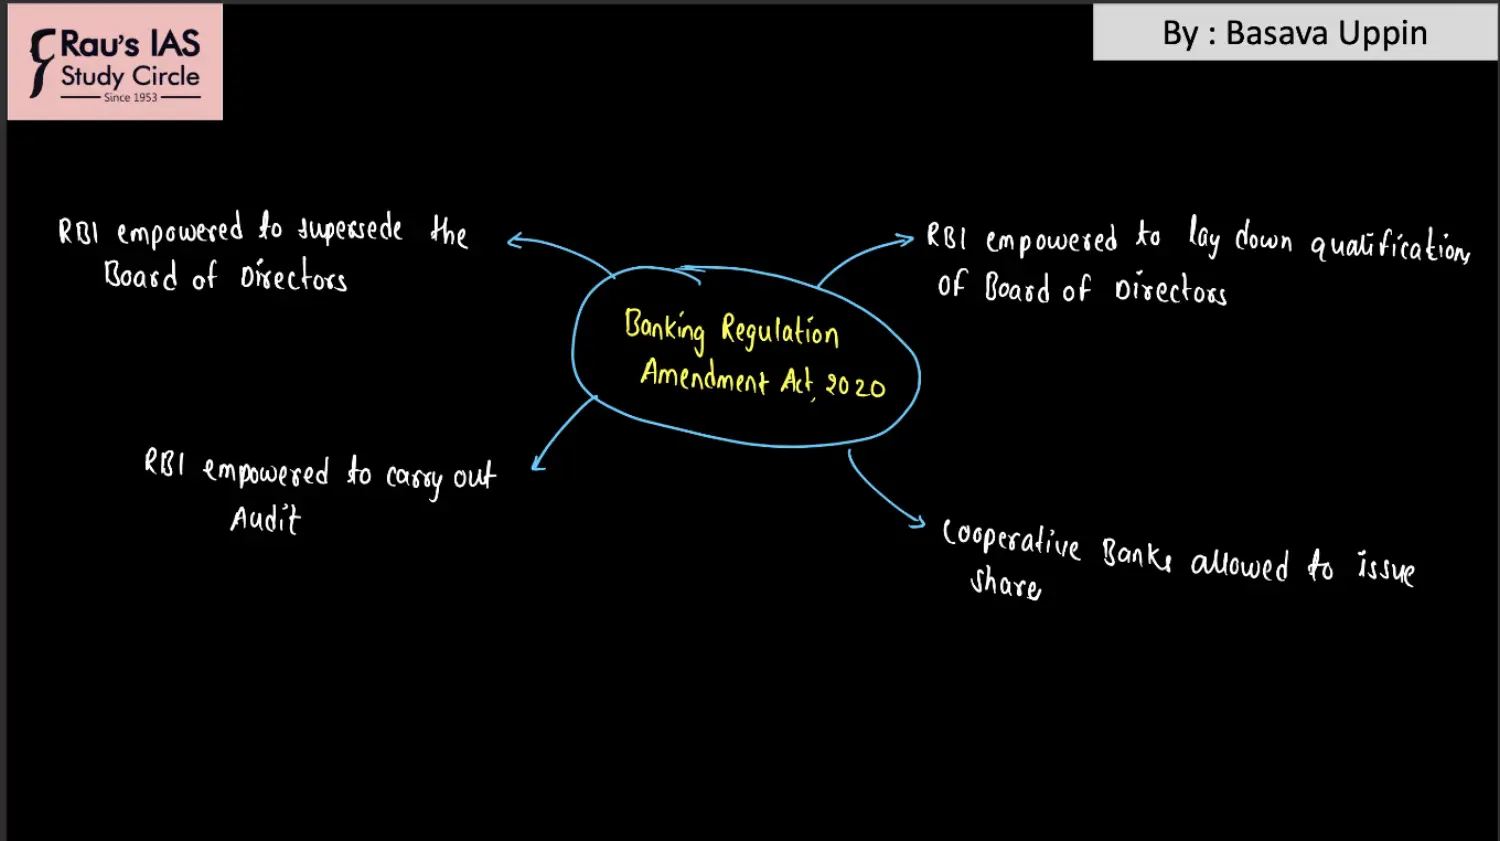 Rau's IAS
Study Circle
Since 1953
By : Basava Uppin
RBI empowered to supersede the
Board of Directors
RBI empowered to lay down qualifications
of Board of Directors
Banking Regulation
Amendment Act, 2020
RBI empowered to carry out
Audit
Cooperative Banks allowed to issue
shares